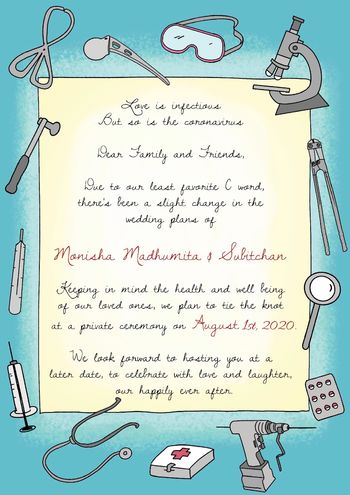 Love is infectious
But so is the coronavirus
Dear Family and Friends,
Due to our least favorite C word,
there's been a slight change in the
wedding plans of
Monisha Madhumita & Subitchan
Keeping in mind the health and well being
of our loved ones, we plan to tie the knot
at a private ceremony on August 1st, 2020.
We look forward to hosting you at a
later date, to celebrate with love and laughter,
our happily ever after.